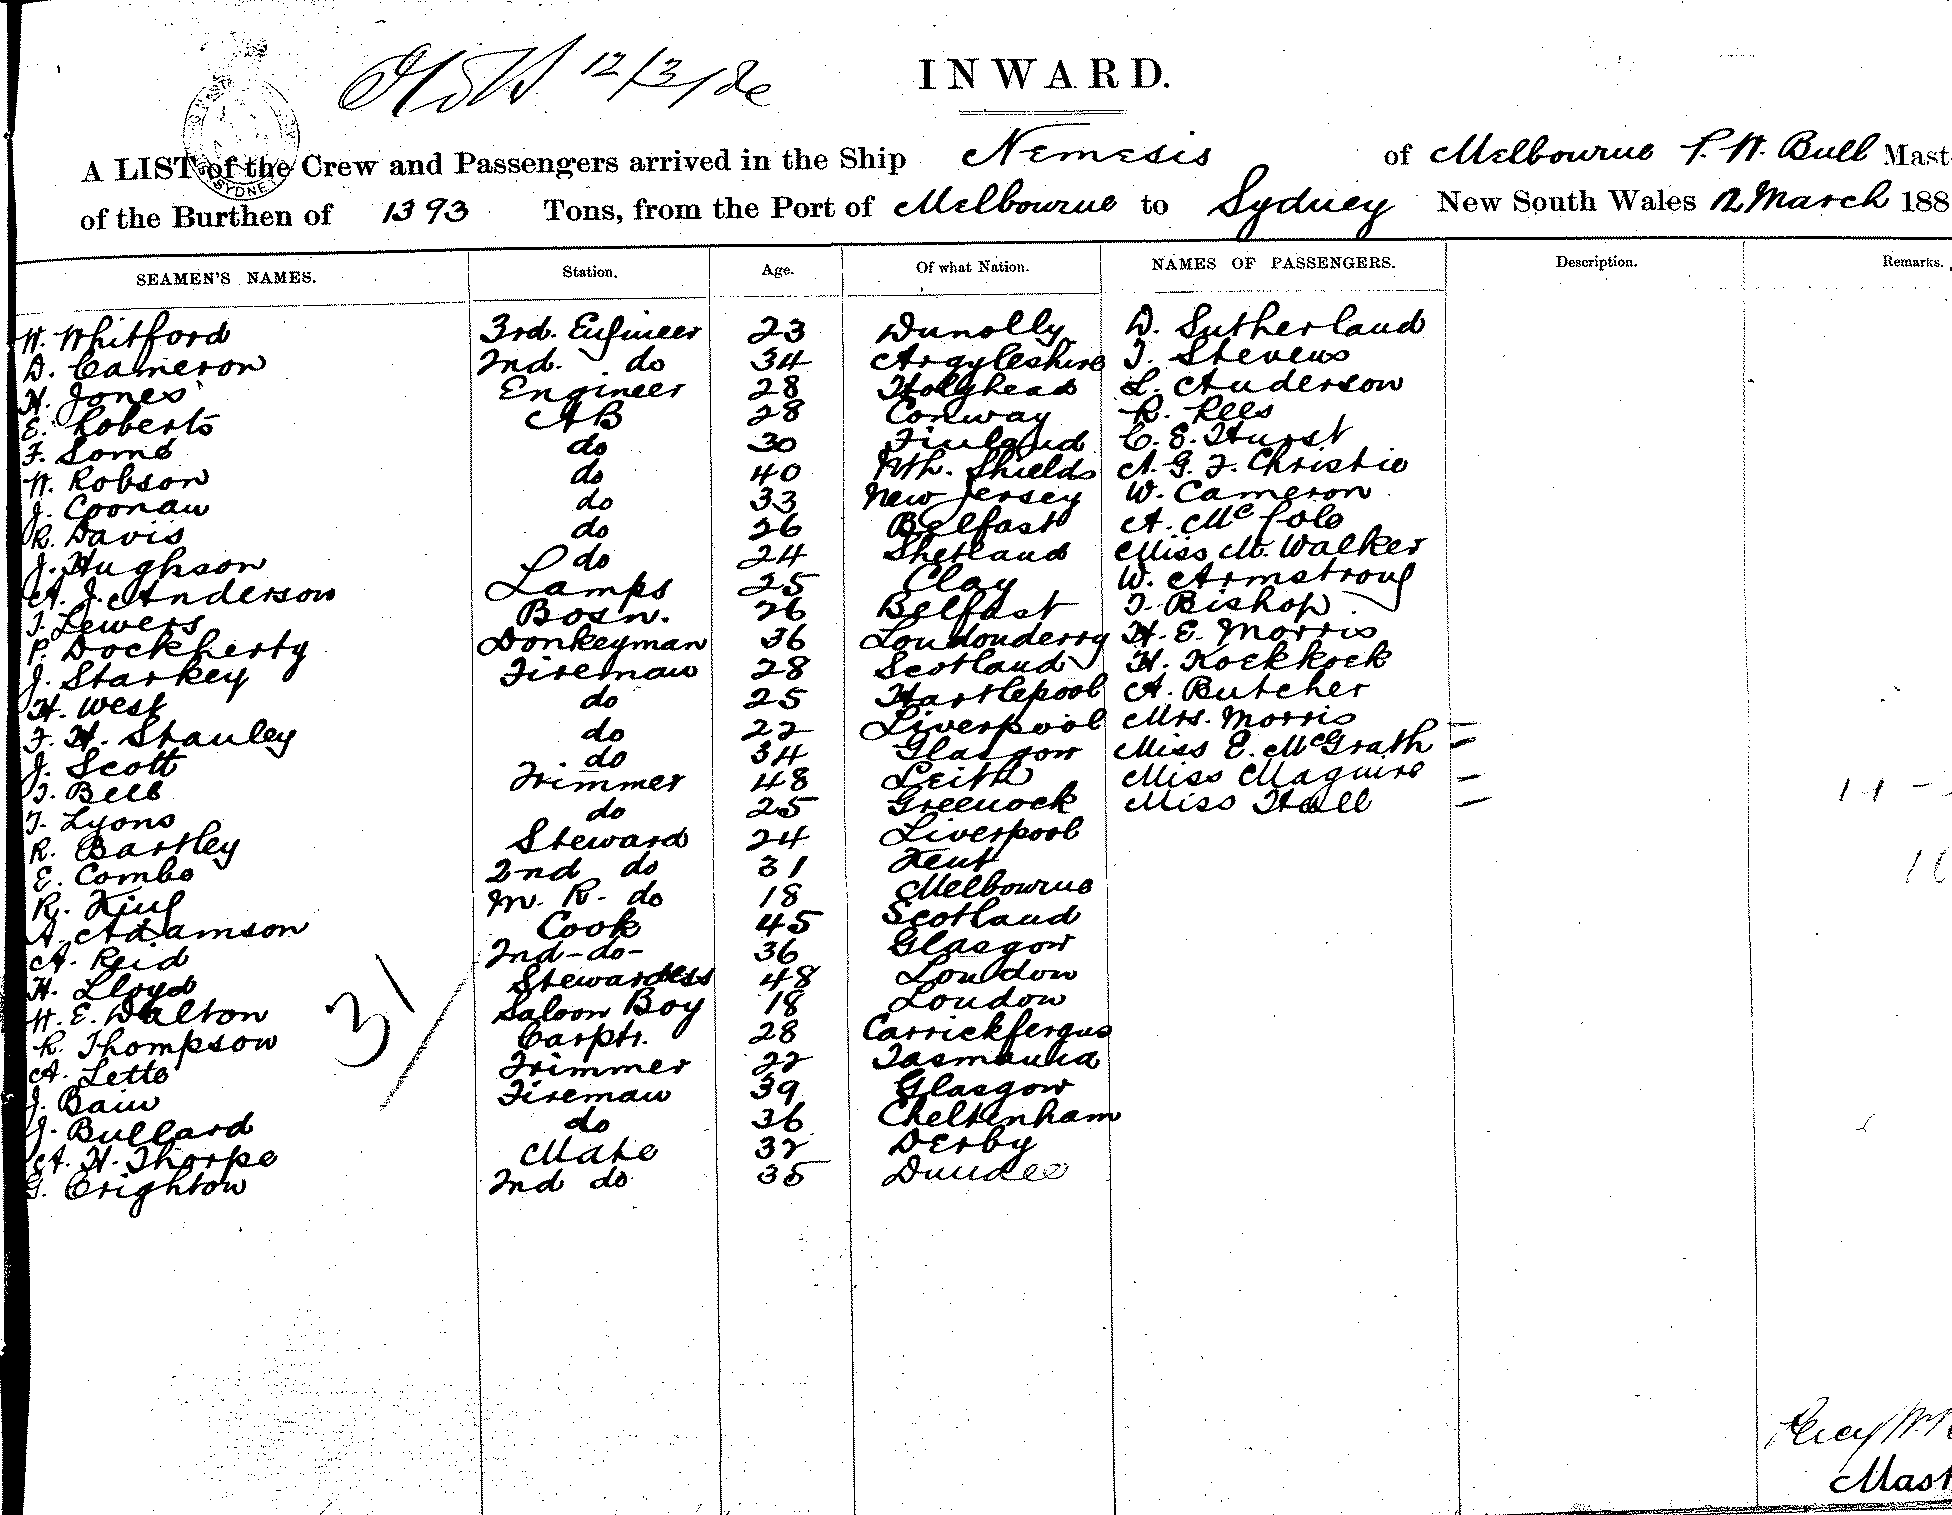 12/3/
INWARD.
A LIST of the Crew and Passengers arrived in the Ship Nemesis of Melbourne P. W. Bull Mast
of the Burthen of 1393 Tons, from the Port of Melbourne to Sydney New South Wales 12 March 188
SEAMEN'S NAMES. Station. Age. Of what Nation. NAMES OF PASSENGERS. Description. Remarks.
W. Whitford 3rd. Engineer 23 Dunolly D. Sutherland
D. Cameron 2nd. do 34 Argyleshire T. Stevens
H. Jones Engineer 28 Holyhead L. Anderson
E. Roberts AB 28 Conway R. Rees
F. do 30 Finland C. E. Hurst
W. Robson do 40 Nth. Shields A. G. F. Christie
J. Coonan do 33 New Jersey W. Cameron
R. Davis do 26 Belfast A. Mc
J. Hughson do 24 Shetland Miss M. Walker
A. J. Anderson Lamps 25 Clay W. Armstrong
T. Lewers Bosn. 26 Belfast T. Bishop
P. Dockherty Donkeyman 36 Londonderry H. E. Morris
J. Starkey Fireman 28 Scotland H. Koekkoek
H. West do 25 Hartlepool A. Butcher
F. H. Stanley do 22 Liverpool Mrs. Morris
J. Scott do 34 Glasgow Miss E. McGrath
T. Bell Trimmer 48 Leith Miss Maguire
T. Lyons do 25 Greenock Miss Hall
R. Bartley Steward 24 Liverpool
E. Combe 2nd do 31 Kent
R. King M. R. do 18 Melbourne
A. Adamson Cook 45 Scotland
A. Reid 2nd - do - 36 Glasgow
H. Lloyd Stewardess 48 London
W. E. Walton Saloon Boy 18 London
R. Thompson Carptr. 28 Carrickfergus
A. Lette Trimmer 22 Tasmania
J. Bain Fireman 39 Glasgow
J. Bullard do 36 Cheltenham
A. H. Thorpe Mate 32 Derby
G. Crighton 2nd do 35 Dundee
31
Percy W.
Mast